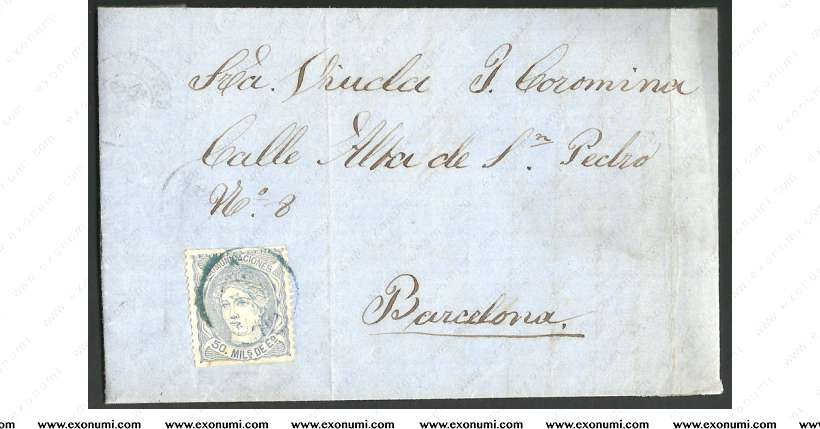 Sra. Viuda J. Coromina
Calle Alta de Sn. Pedro
No. 8
COMUNICACIONES
50. MILS DE Eo.
Barcelona.
www.exonumi.com www.exonumi.com www.exonumi.com www.exonumi.com www.exonumi.com www.exonumi.com